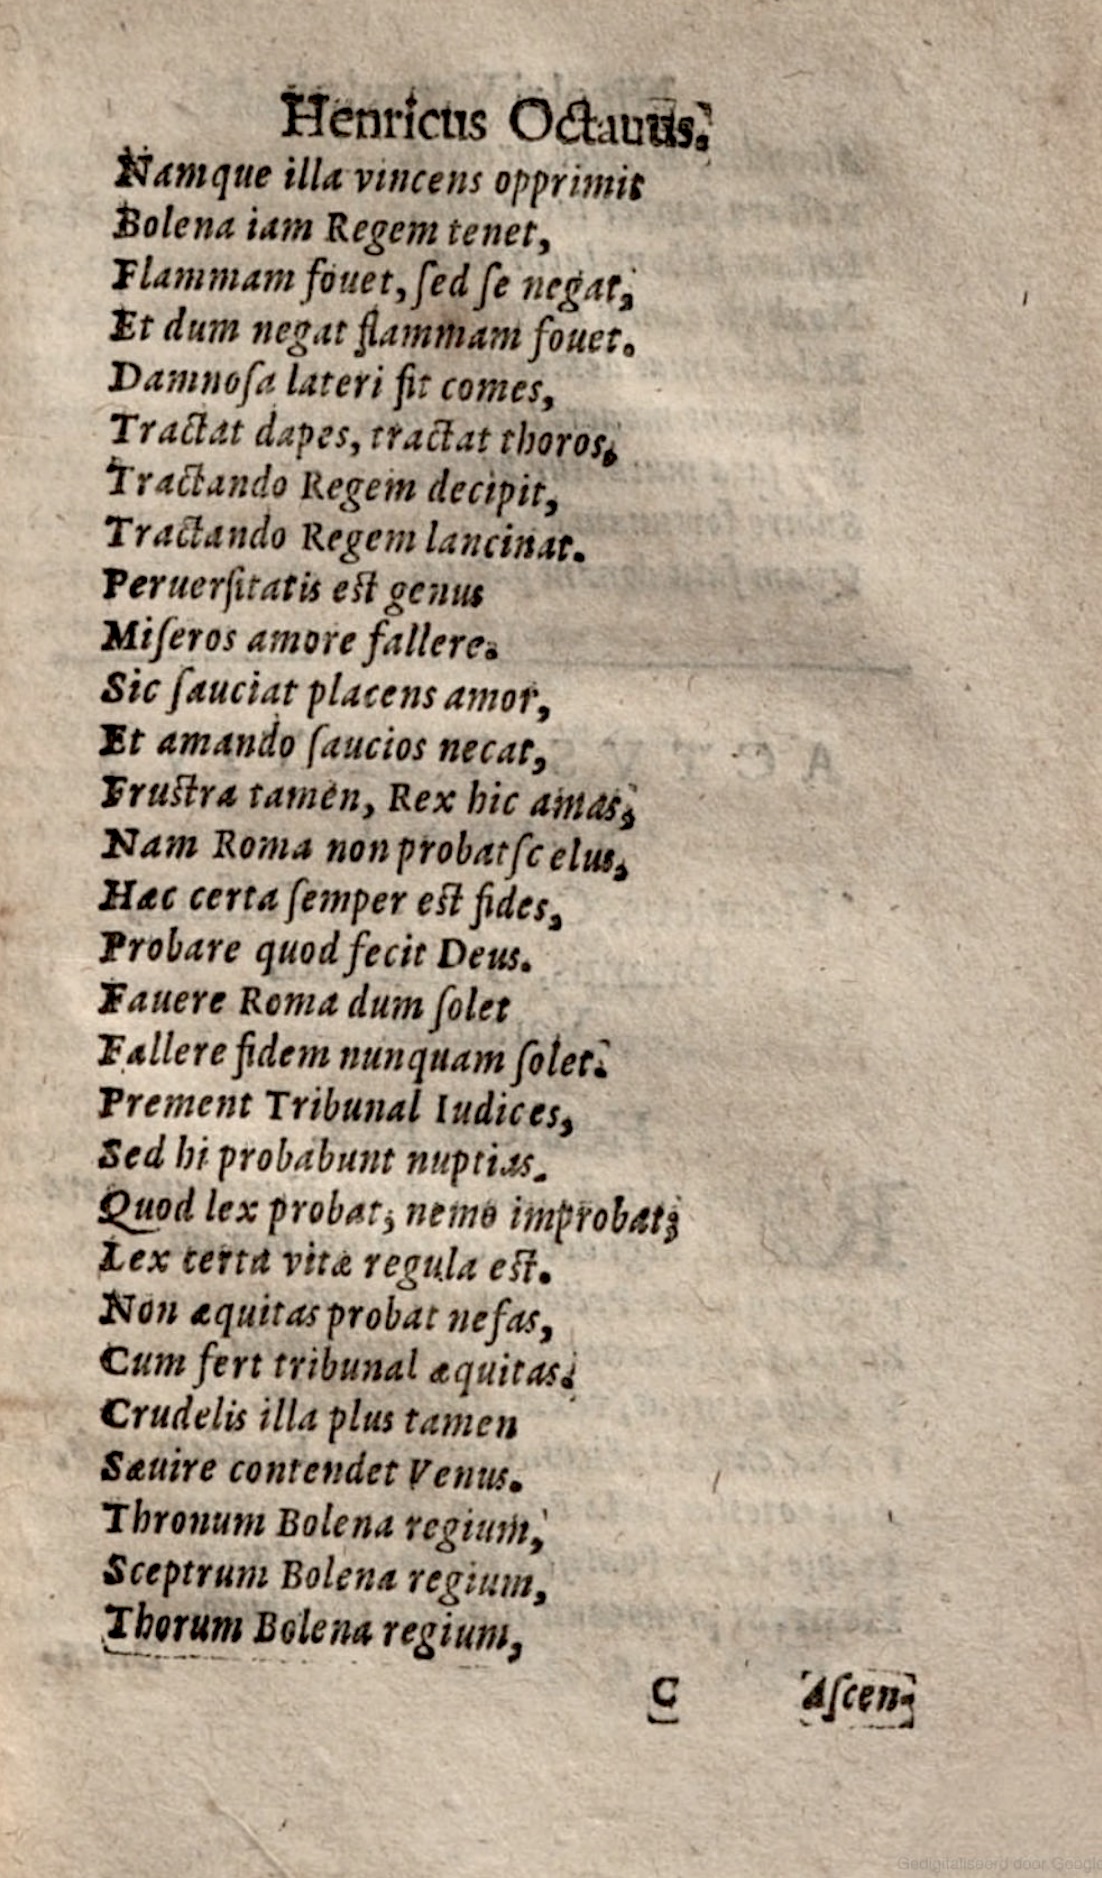 Henricus Octauus.
Namque illa vincens opprimit
Bolena iam Regem tenet,
Flammam fouet, ſed ſe negat;
Et dum negat flammam fouet.
Damnoſa lateri fit comes,
Tractat dapes, tractat thoros;
Tractando Regem decipit,
Tractando Regem lancinat.
Peruerſitatis eſt genus
Miſeros amore fallere.
Sic ſauciat placens amor,
Et amando ſaucios necat,
Fruſtra tamen, Rex hic amas;
Nam Roma non probat ſcelus,
Hæc certa ſemper eſt fides,
Probare quod fecit Deus.
Fauere Roma dum ſolet
Fallere fidem nunquam ſolet.
Prement Tribunal Iudices,
Sed hi probabunt nuptias.
Quod lex probat; nemo improbat;
Lex certa vitæ regula eſt.
Non æquitas probat nefas,
Cum fert tribunal æquitas.
Crudelis illa plus tamen
Sæuire contendet Venus.
Thronum Bolena regium,
Sceptrum Bolena regium,
Thorum Bolena regium,
C Aſcen-
Gedigitaliseerd door Google